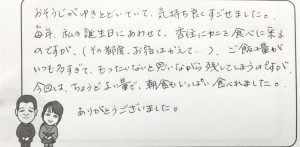 おそうじがゆきとどいていて、気持ち良くすごせました。
毎年、私の誕生日にあわせて、香住にカニを食べに来る
のですが、(その都度、お宿はかえて...)、ご飯の量が
いつも多すぎて、もったいないと思いながら残してしまうのですが、
今回は、ちょうどよい量で、朝食もいっぱい食べれました。
ありがとうございました。